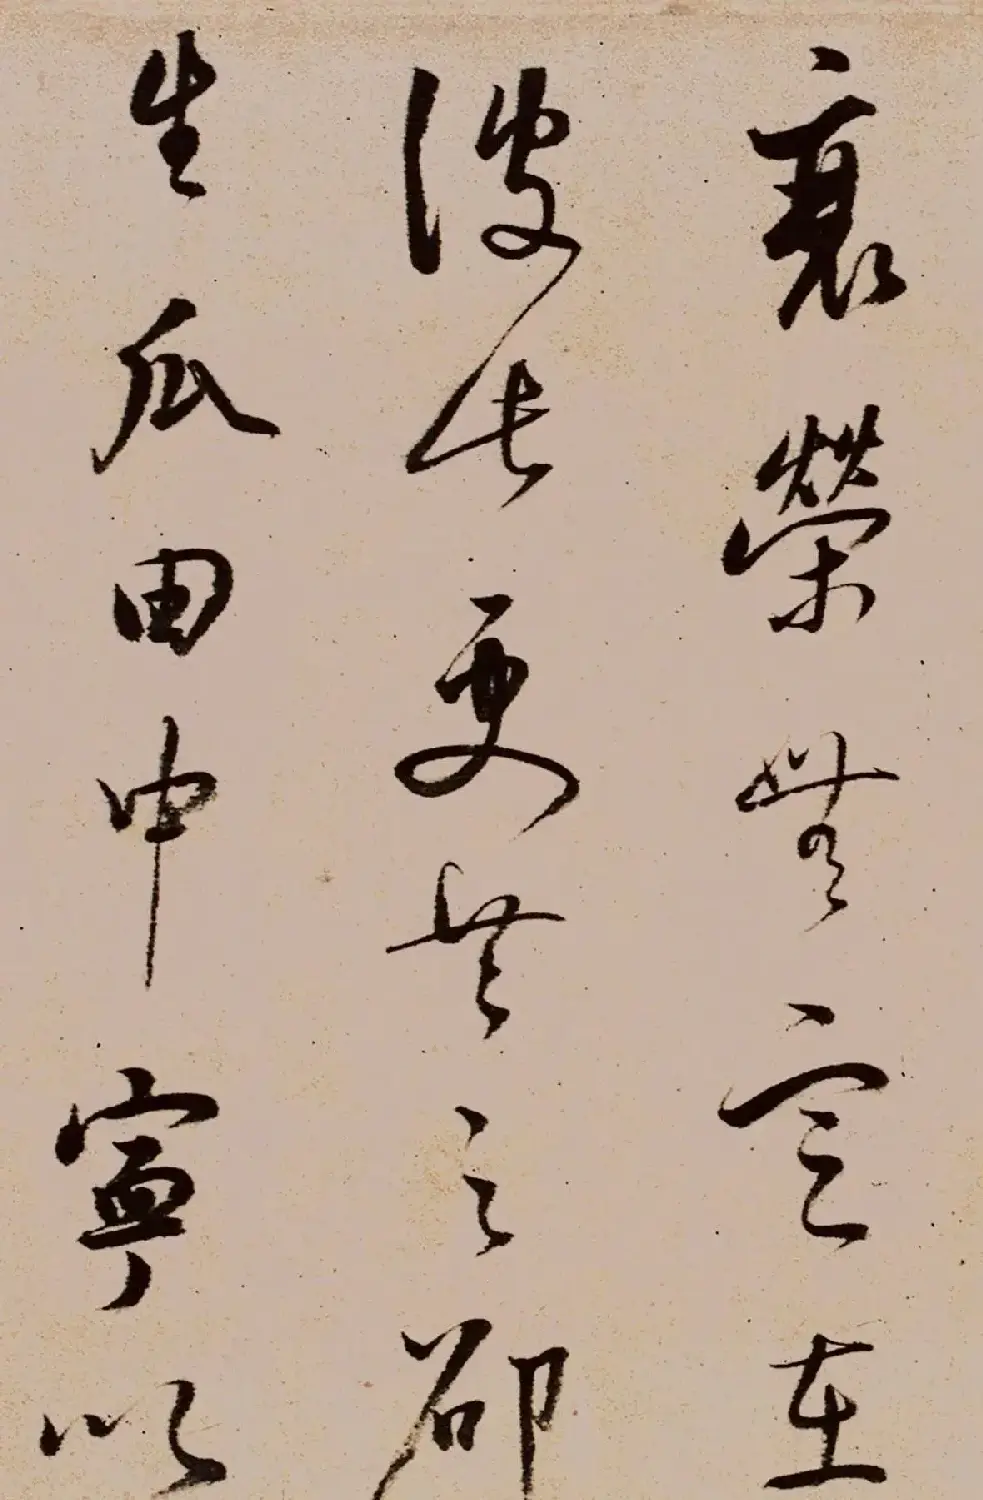 衰榮無定在
彼此更共之邵
生瓜田中寧以